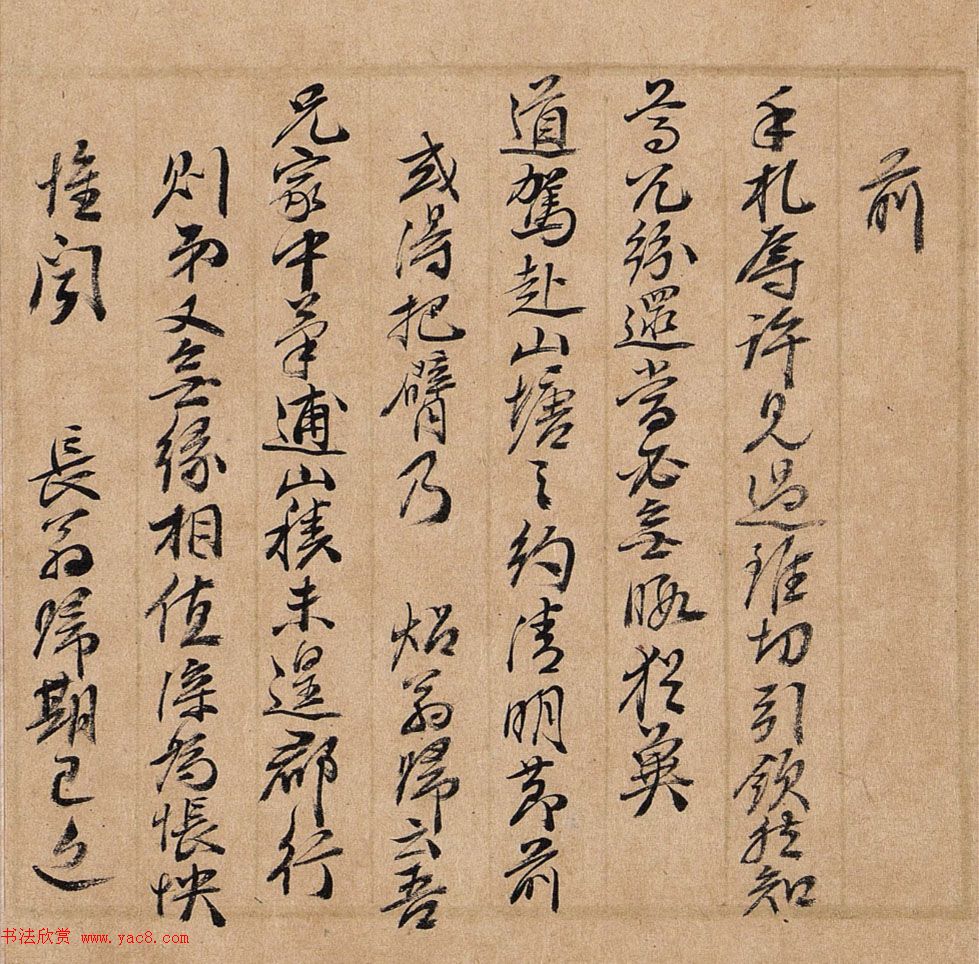 前
手札辱許見過雖切引領然知
尊兄紛還當必無暇猶冀
道駕赴山塘之約清明節前
或得把臂乃 炤翁歸云吾
兄家中筆逋山積未遑郡行
則弟又無緣相值深為悵怏
惟聞 長翁歸期已近
书法欣赏 www.yac8.com